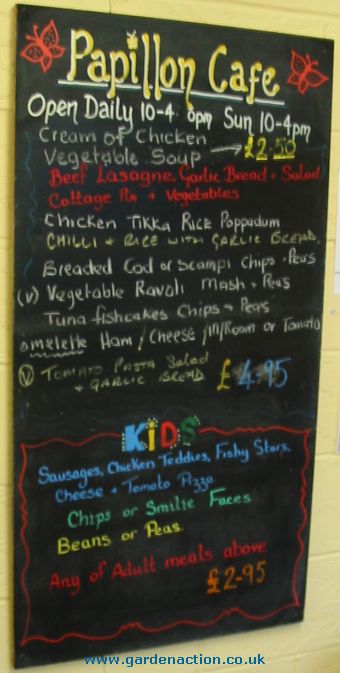 Papillon Cafe
Open Daily 10-4 opm Sun 10-4pm
Cream of Chicken
Vegetable Soup → £2.50
Beef Lasagne, Garlic Bread + Salad
Cottage Pie + Vegetables
Chicken Tikka Rice Poppadum
CHILLI + RICE WITH GARLIC BREAD.
Breaded Cod or Scampi Chips + Peas
(V) Vegetable Ravoli Mash + Peas
Tuna fishcakes Chips + Peas
omelette Ham / Cheese / M/Room or Tomato
(V) TOMATO PASTA Salad
+ GARLIC BREAD £4.95
KiDS
Sausages, Chicken Teddies, Fishy Stars,
Cheese + Tomato Pizza
Chips or Smilie Faces
Beans or Peas.
Any of Adult meals above
£2-95
www.gardenaction.co.uk